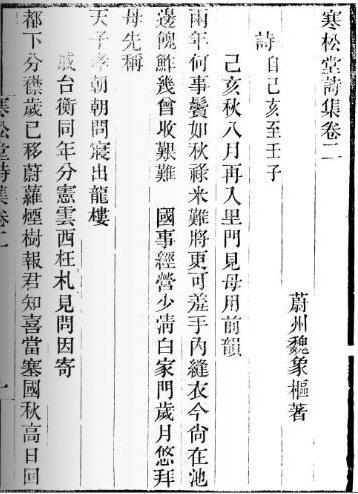 寒松堂詩集卷二
蔚州魏象樞著
詩自己亥至壬子
己亥秋八月再入里門見母用前韻
兩年何事鬢如秋祿米難將更可羞手內縫衣今尚在池
邊餽鮓幾曾收艱難　國事經營少清白家門歲月悠拜
母先稱
天子孝朝朝問寢出龍樓
戚台衡同年分憲雲西枉札見問因寄
都下分襟歲已移蔚蘿煙樹報君知喜當塞國秋高日回
寒松堂詩集卷二
一